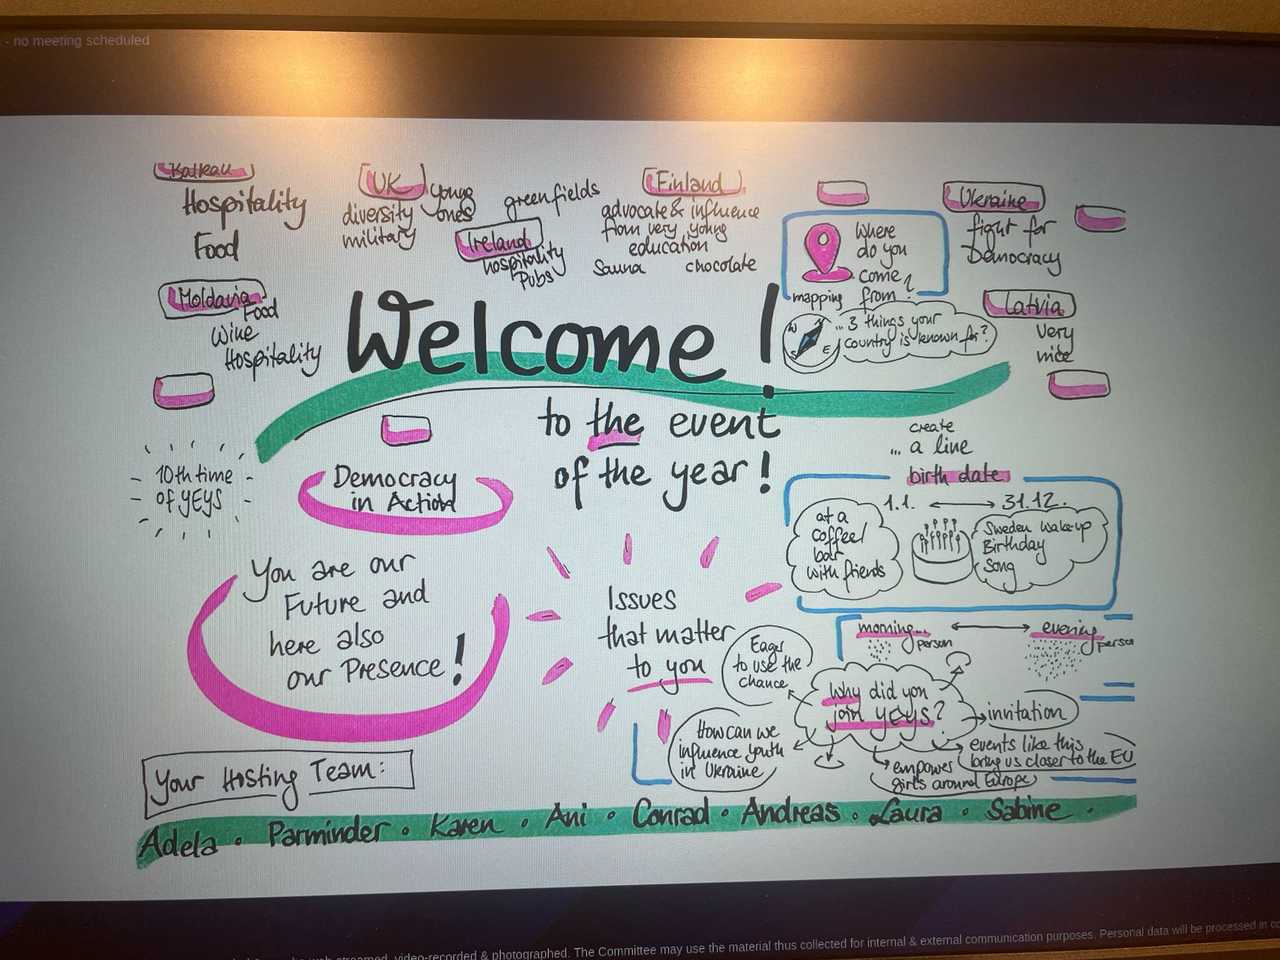 - no meeting scheduled
Balkan
Hospitality
Food
UK
diversity
military
young
ones
green fields
Ireland
hospitality
Pubs
Finland
advocate & influence
from very young
education
Sauna chocolate
Where
do you
come
from?
mapping
N
W
S E
... 3 things your
country is known for?
Ukraine
fight for
Democracy
Latvia
very
nice
Moldavia
Food
Wine
Hospitality
Welcome!
to the event
of the year!
10th time
of YEYS
Democracy
in Action
You are our
Future and
here also
our Presence!
Issues
that matter
to you
create
... a line
birth date
1.1. 31.12.
at a
coffee
bar
with friends
Sweden wake-up
Birthday
Song
morning...
person
evening
person
Why did you
join YEYS?
Eager
to use the
chance
How can we
influence youth
in Ukraine
invitation
events like this
bring us closer to the EU
empower
girls around Europe
Your Hosting Team:
Adela • Parminder • Karen • Ani • Conrad • Andreas • Laura • Sabine •
streamed, video-recorded & photographed. The Committee may use the material thus collected for internal & external communication purposes. Personal data will be processed in